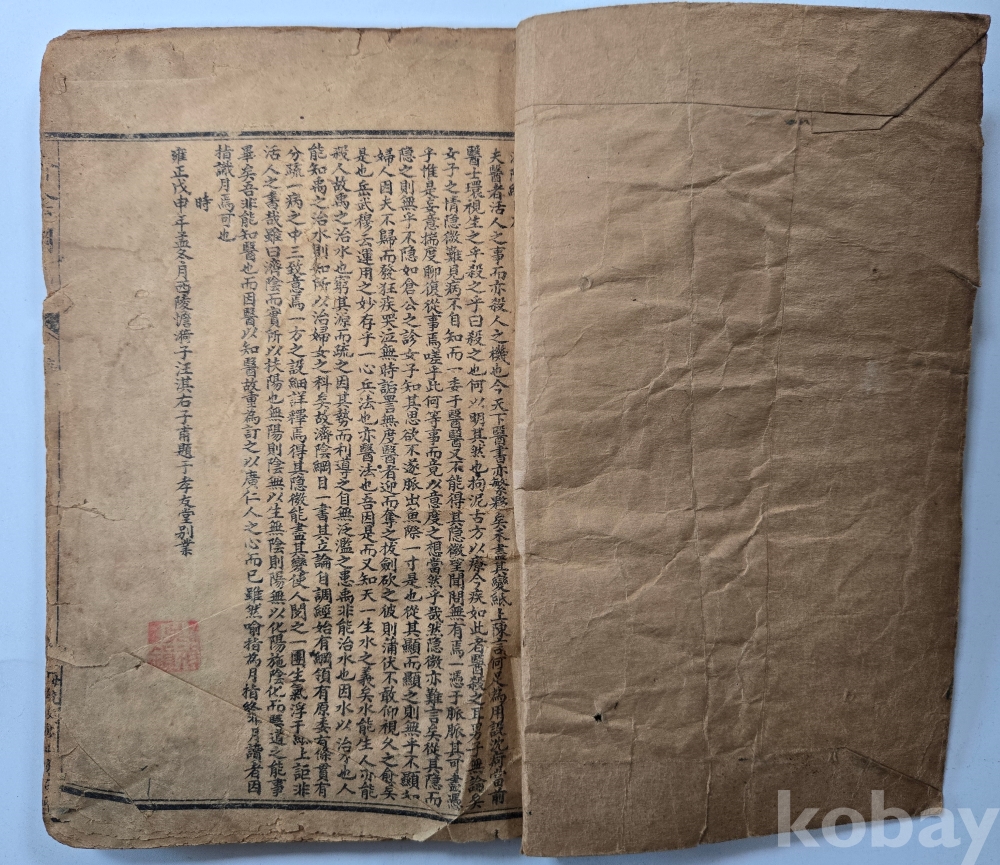 夫醫者活人之事而亦殺人之機也今天下醫書亦繁夥矣未盡其變紙上陳言何足為用設沉疴當前
醫士環視生之乎殺之乎曰殺之也何以明其然也拘泥古方以療今疾如此者醫殺之耳男子無論矣
女子之情隐微難見病不自知而一委于醫醫又不能得其隐微望聞問無有焉一憑于脈脈其可盡憑
乎惟是妄意揣度聊復從事焉嗟乎此何等事而竟以意度之想當然乎哉然隐微亦難言矣從其隐而
隐之則無乎不隐如倉公之診女子知其思欲不遂脈出魚際一寸是也從其顯而顯之則無乎不顯如
婦人因夫不歸而發狂疾哭泣無時詬詈無度醫者迎而奪之拔劍砍之彼則蒲伏不敢仰視久之俞矣
是也岳武穆云運用之妙存乎一心兵法也亦醫法也吾因是而又知天一生水之義矣水能生人亦能
殺人故禹之治水也窮其源而疏之因其勢而利導之自無泛濫之患禹非能治水也因水以治水也人
能知禹之治水則知所以治婦女之科矣故濟陰綱目一書其立論自調經始有綱領有原委有條貫有
分疏一病之中三致意焉一方之設細詳釋焉得其隐微能盡其變使人閱之一團生氣浮于紙上詎非
活人之書哉雖曰濟陰而實所以扶陽也無陽則陰無以生無陰則陽無以化陽施陰化而醫道之能事
畢矣吾非能知醫也而因醫以知醫故重為訂之以廣仁人之心而已雖然喻指為月指終非月讀者因
指識月焉可也
時
雍正戊申年孟冬月西陵憺漪子汪淇右子甫題于孝友堂別業
kobay